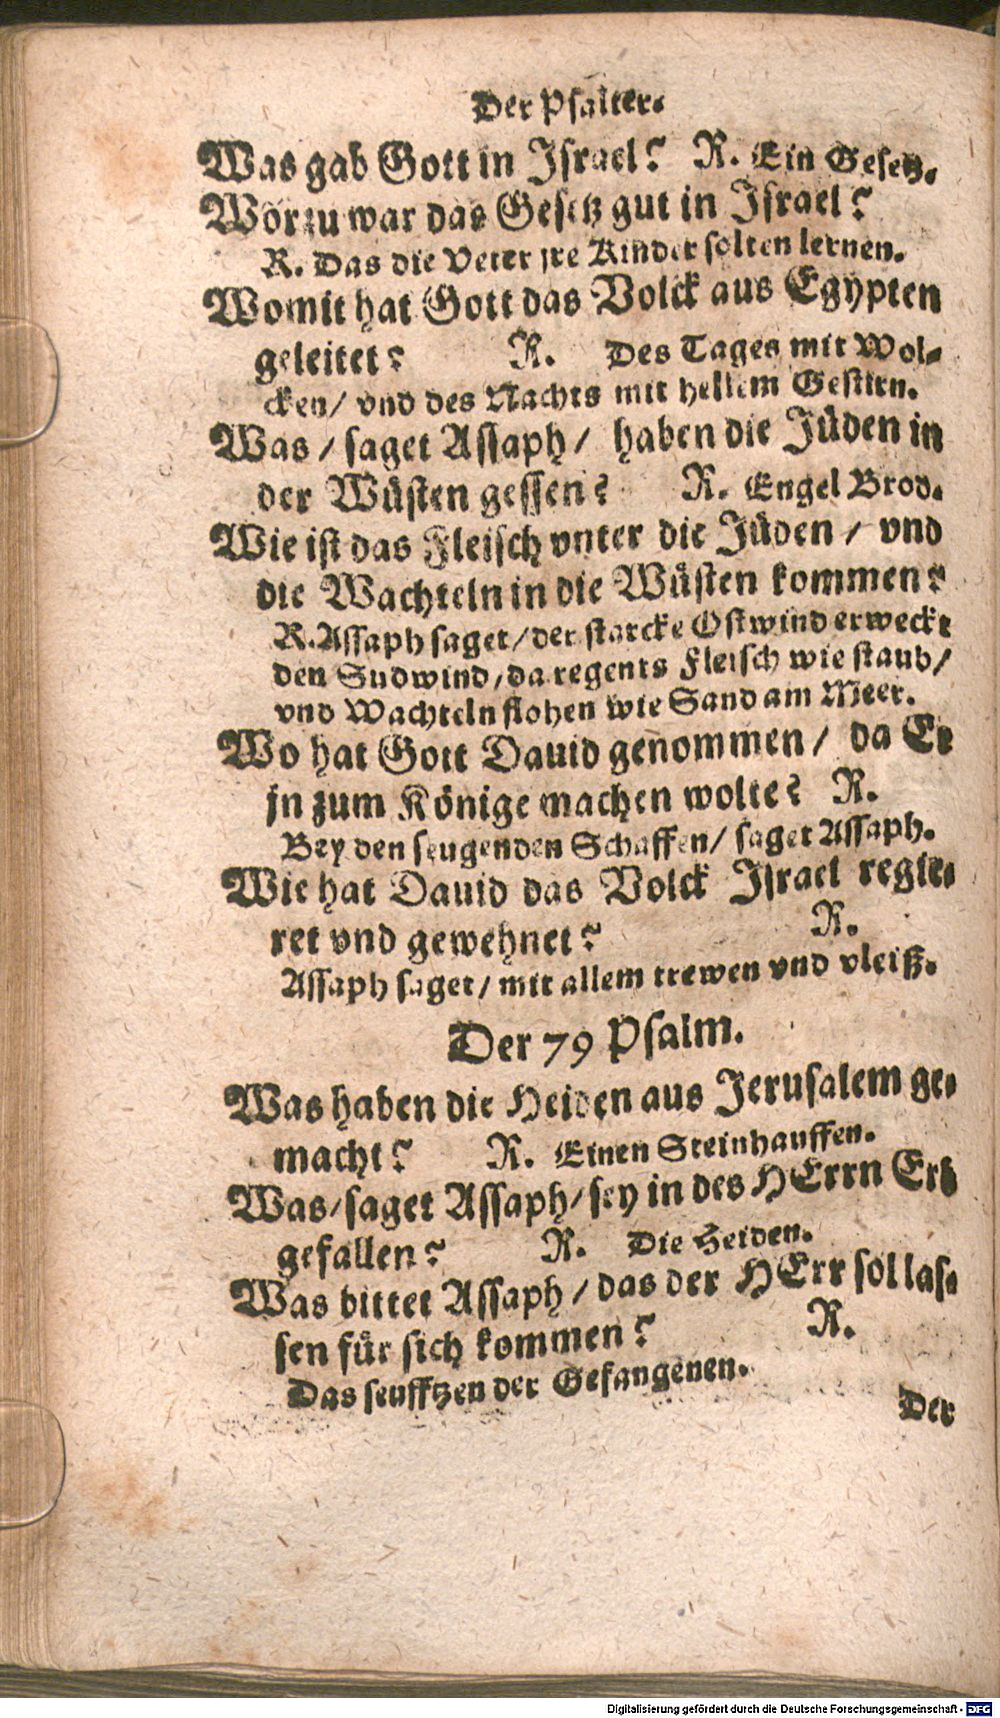 Der Psalter.
Was gab Gott in Israel? R. Ein Gesetz.
Worzu war das Gesetz gut in Israel?
R. Das die Veter jre Kinder solten lernen.
Womit hat Gott das Volck aus Egypten
geleitet? R. Des Tages mit Wol-
cken/ vnd des Nachts mit hellem Gestirn.
Was / saget Assaph / haben die Jüden in
der Wüsten gessen? R. Engel Brod.
Wie ist das Fleisch vnter die Jüden / vnd
die Wachteln in die Wüsten kommen?
R. Assaph saget/ der starcke Ostwind erweckt
den Sudwind, da regents Fleisch wie staub/
vnd Wachteln flohen wie Sand am Meer.
Wo hat Gott Dauid genommen / da Er
jn zum Könige machen wolte? R.
Bey den seugenden Schaffen/ saget Assaph.
Wie hat Dauid das Volck Israel regie-
ret vnd gewehnet? R.
Assaph saget / mit allem trewen vnd vleiß.
Der 79 Psalm.
Was haben die Heiden aus Jerusalem ge-
macht? R. Einen Steinhauffen.
Was/ saget Assaph/ sey in des HErrn Erb
gefallen? R. Die Heiden.
Was bittet Assaph / das der HErr sol las-
sen für sich kommen? R.
Das seufftzen der Gefangenen.
Der
Digitalisierung gefördert durch die Deutsche Forschungsgemeinschaft - DFG